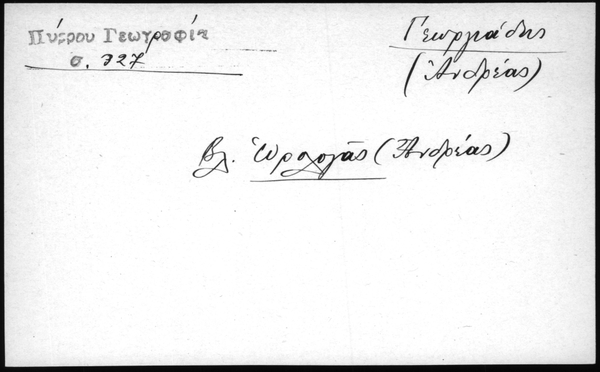 Πύρρου Γεωγραφία
σ. 327
Γεωργιάδης
(Ἀνδρέας)
Βλ. Ὡρολογᾶς (Ἀνδρέας)